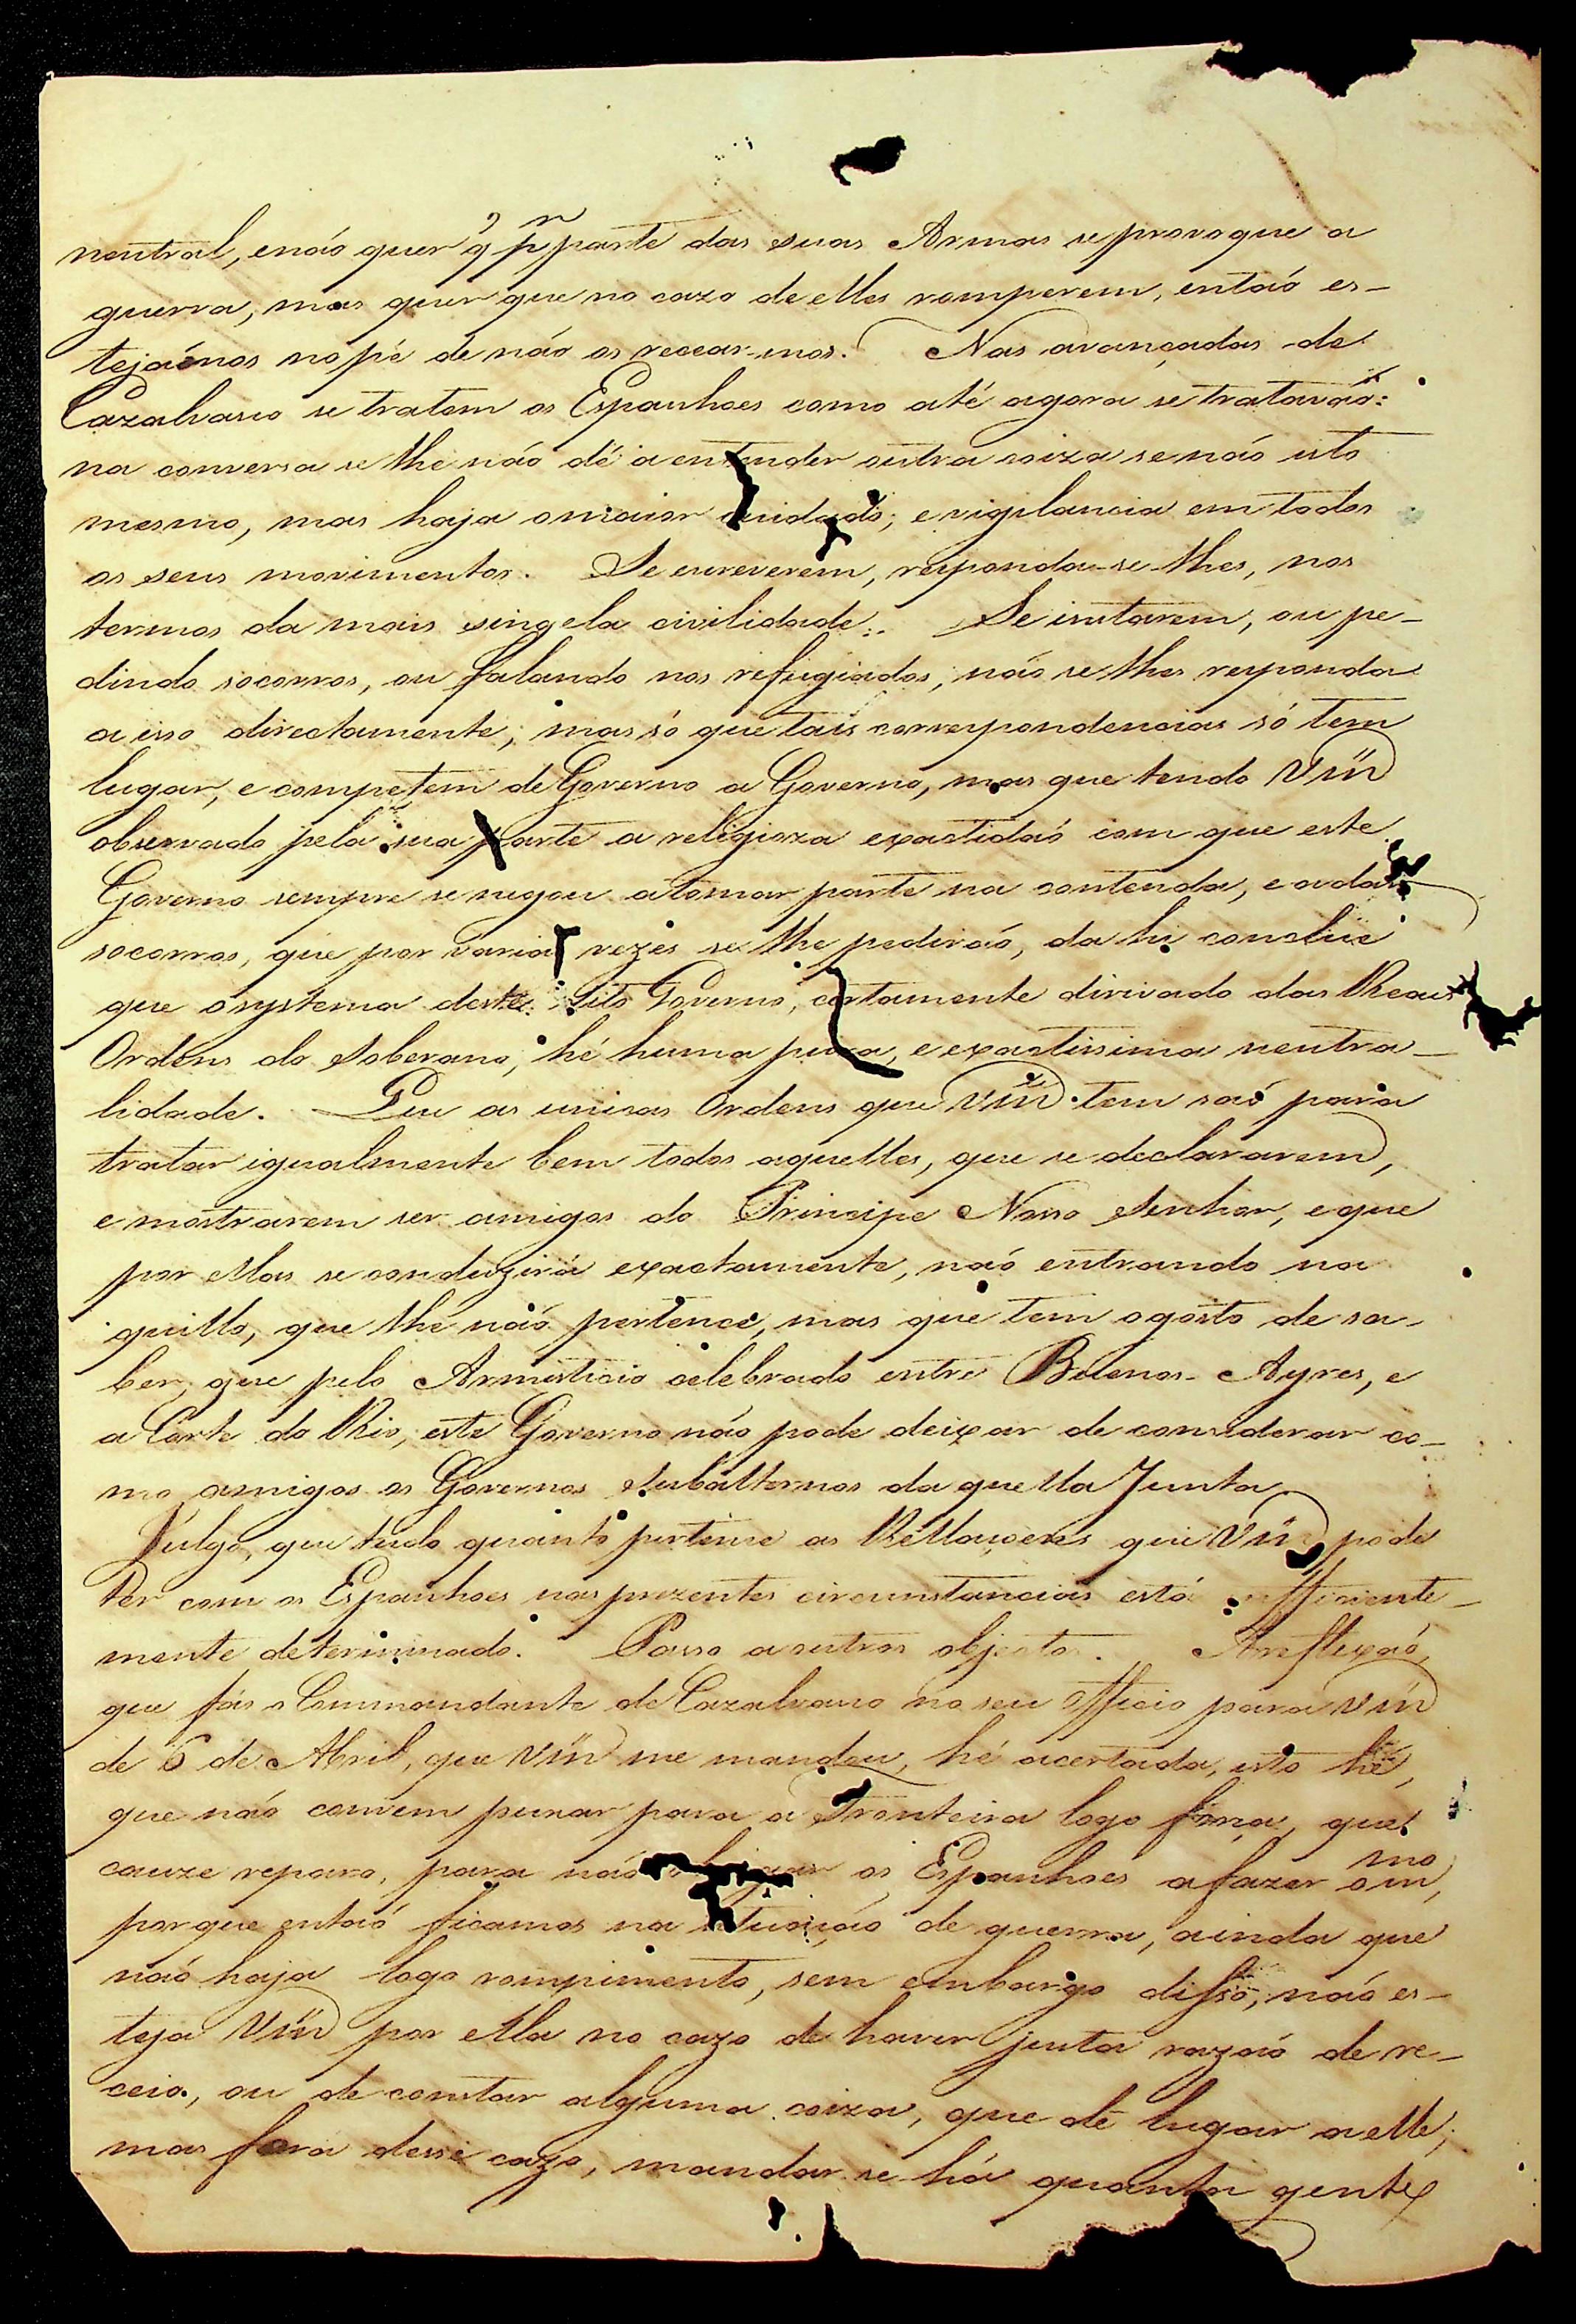 neutral, enáo quer q̃ pr parte das suas Armas se provoque a
guerra, mas quer que no cazo de elles romperem, entáo es-
tejámos no pé de náo os recearmos. Nas avançadas de
Cazalvasco se tratem os Espanhoes como até agora se tratavaó:
na conversa se lhe náo dê a entender outra coiza se náo isto
mesmo, mas haja o maior cuidado, e vigilancia em todos
os seus movimentos. Se escreverem, responda-se-lhes, nos
termos da mais singela civilidade. Se instarem, ou pe-
dindo socorros, ou falando nos refugiados, náo se lhes responda
a isso directamente, mas só que tais correspondencias só tem
lugar, e competem de Governo a Governo, mas que tendo Vm̃
observado pela sua parte a religioza exactidaó com que este
Governo sempre se negou a tomar parte na contenda, e a dar
socorros, que por varias vezes se lhe pediraó, da hi conclúe
que o systema deste dito Governo, certamente dirivado das Reaes
Ordens do Soberano, hé huma pura, e exactissima neutra-
lidade. Que as unicas Ordens que Vm̃ tem saó para
tratar igualmente bem todos aquelles, que se declararem,
e mostrarem ser amigos do Principe Nosso Senhor, e que
por ellas se conduzirá exactamente, náo entrando na
quillo, que lhe náo pertence, mas que tem o gosto de sa-
ber, que pelo Armisticio celebrado entre Buenos-Ayres, e
a Corte do Rio, este Governo náo pode deixar de considerar co-
mo amigos os Governos Subalternos da quella Junta.
Julgo, que tudo quanto pertence as Rellaçoens que Vm̃ pode
ter com os Espanhoes nas prezentes circunstancias está sufficiente-
mente determinado. Passo a outros objectos. A reflexaó,
que fás o Commandante de Cazalvasco no seu Officio para Vm̃
de 6 de Abril, que Vm̃ me mandou, hé acertada, isto hé,
que náo convem puxar para a Fronteira logo força, que
cauze reparo, para náo obrigar os Espanhoes a fazer omm̃o,
porque entaó ficamos na situaçáo de guerra, ainda que
naó haja logo rompimento, sem embargo disso, náo es-
teja Vm̃ por ella no cazo de haver justa razaó de re-
ceio, ou de constar alguma coiza, que dê lugar a elle;
mas fora desse cazo, mandar-se-há quanta gente